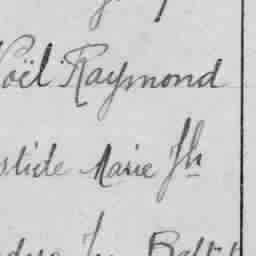 Noël Raymond
stide Marie Jh
Jh Bapt